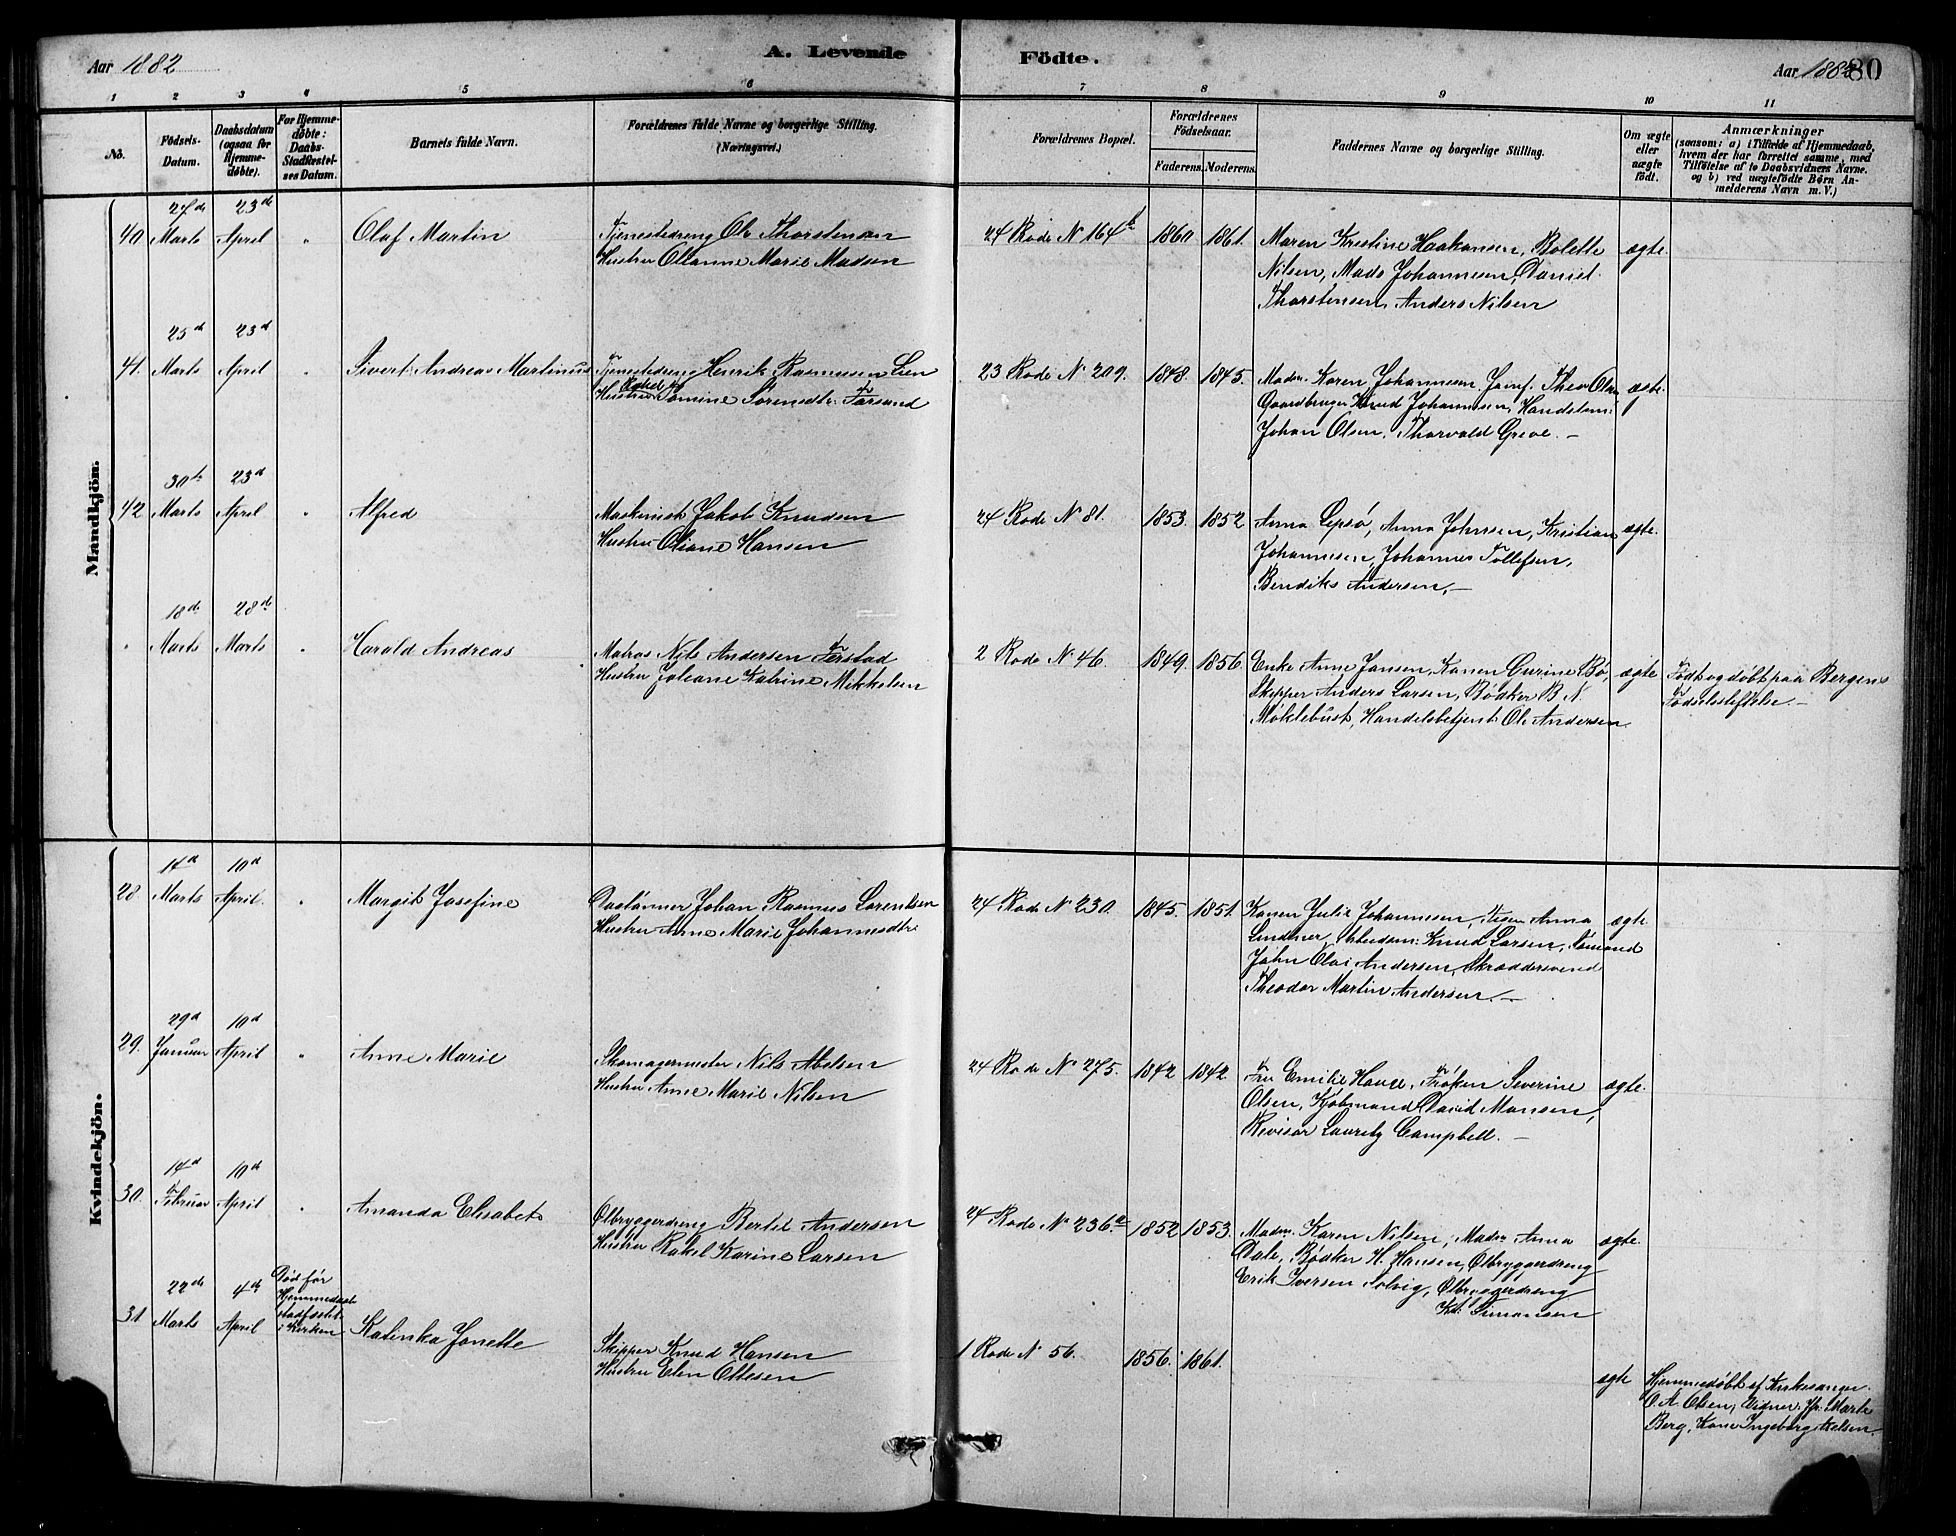 Aar 1882
A. Levende
Födte.
Aar 1882
80
1 2 3 4 5 6 7 8 9 10 11
No.
Födsels-Datum.
Daabsdatum (ogsaa for Hjemme-døbte).
For Hjemme-døbte: Daabs-Stadfæstel-ses Datum.
Barnets fulde Navn.
Forældrenes fulde Navne og borgerlige Stilling. (Næringsvei.)
Forældrenes Bopæl.
Forældrenes Fødselsaar.
Faderens. Moderens.
Faddernes Navne og borgerlige Stilling.
Om ægte eller uægte født.
Anmærkninger
(saasom: a) i Tilfælde af Hjemmedaab,
hvem der har forrettet samme, med
Tilføielse af to Daabsvidners Navne.
og b) ved uægtefødte Børn An-
melderens Navn m. V.)
Mandkjön.
40. 27de Marts 23de April " Olaf Martin
Tjenestedreng Ole Thorstensen
Hustru Olianne Marie Madsen
24 Rode No 164b 1860 1861.
Maren Kristine Haakansen, Bolette
Nilsen, Mads Johannesen, Daniel
Thorstensen, Anders Nilsen
ægte.
41. 25de Marts 23d April " Sivert Andreas Martinus
Tjenestedreng Henrik Rasmussen Lien
Hustru Rakel Tomine Sörensdtr. Farsund
23 Rode No 209. 1848. 1845.
Madm. Karen Johannesen, Jomf. Thea Olsen
Gaardbruger Knud Johannesen, Handelsm:
Johan Olsen, Thorvald Greve. –
ægte
42. 30te Marts 23d April " Alfred
Maskinist Jakob Knudsen
Hustru Oliane Hansen
24 Rode No 81. 1853. 1852
Anna Lepsö, Anna Johnsen, Kristian
Johannesen, Johannes Tollefsen,
Bendiks Andersen, –
ægte.
" 18de Marts 28de Marts " Harald Andreas
Matros Nils Andersen Ferstad
Hustru Joleane Katrine Mikkelsen
2 Rode No 46. 1849. 1856.
Enke Anne Jansen, Konen Gurine Bö,
Skipper Anders Larsen, Bødker B. N.
Møklebust, Handelsbetjent Ole Andersen
ægte
Født og døbt paa Bergens
Fødselsstiftelse. –
Kvindekjön.
28 14d Marts 10d April. " Margit Josefine
Daglönner Johan Rasmus Lorentsen
Hustru Anne Marie Johannesdtr
24 Rode No 230. 1845. 1851.
Konen Julie Johannesen, Pigen Anna
Lindtner, Arbeidsm: Knud Larsen, Sömand
John Olai Andersen, Skræddersvend
Theodor Martin Andersen. –
ægte
29. 29d Januar 10d April " Anne Marie
Skomagermester Nils Abelsen
Hustru Anne Marie Nilsen
24 Rode No 275. 1842 1842
Fru Emilie Hauge, Frøken Severine
Olsen, Kjøbmand David Monsen,
Revisor Lauritz Campbell. –
ægte.
30. 14d Februar 10d April " Amanda Elisabet
Ølbryggerdreng Bertel Andersen
Hustru Rakel Karine Larsen
24 Rode No 236a 1852 1853.
Madm. Karen Nilsen, Madm Anna
Dale, Bødker H. Hansen, Ølbryggerdreng
Erik Iversen Solvig, Ølbryggerdreng
Simonsen
ægte.
31 22de Marts 4de April
Død før
Hjemmedaab
stadfæstet
i Kirken
Katinka Jonette
Skipper Knud Hansen
Hustru Elen Ottesen
1 Rode No 56. 1856. 1861.
ægte
Hjemmedøbt af Kirkesanger
O. A. Olsen, Vidner: Jfr. Marte
Berg, Kone Ingeborg Axelsen